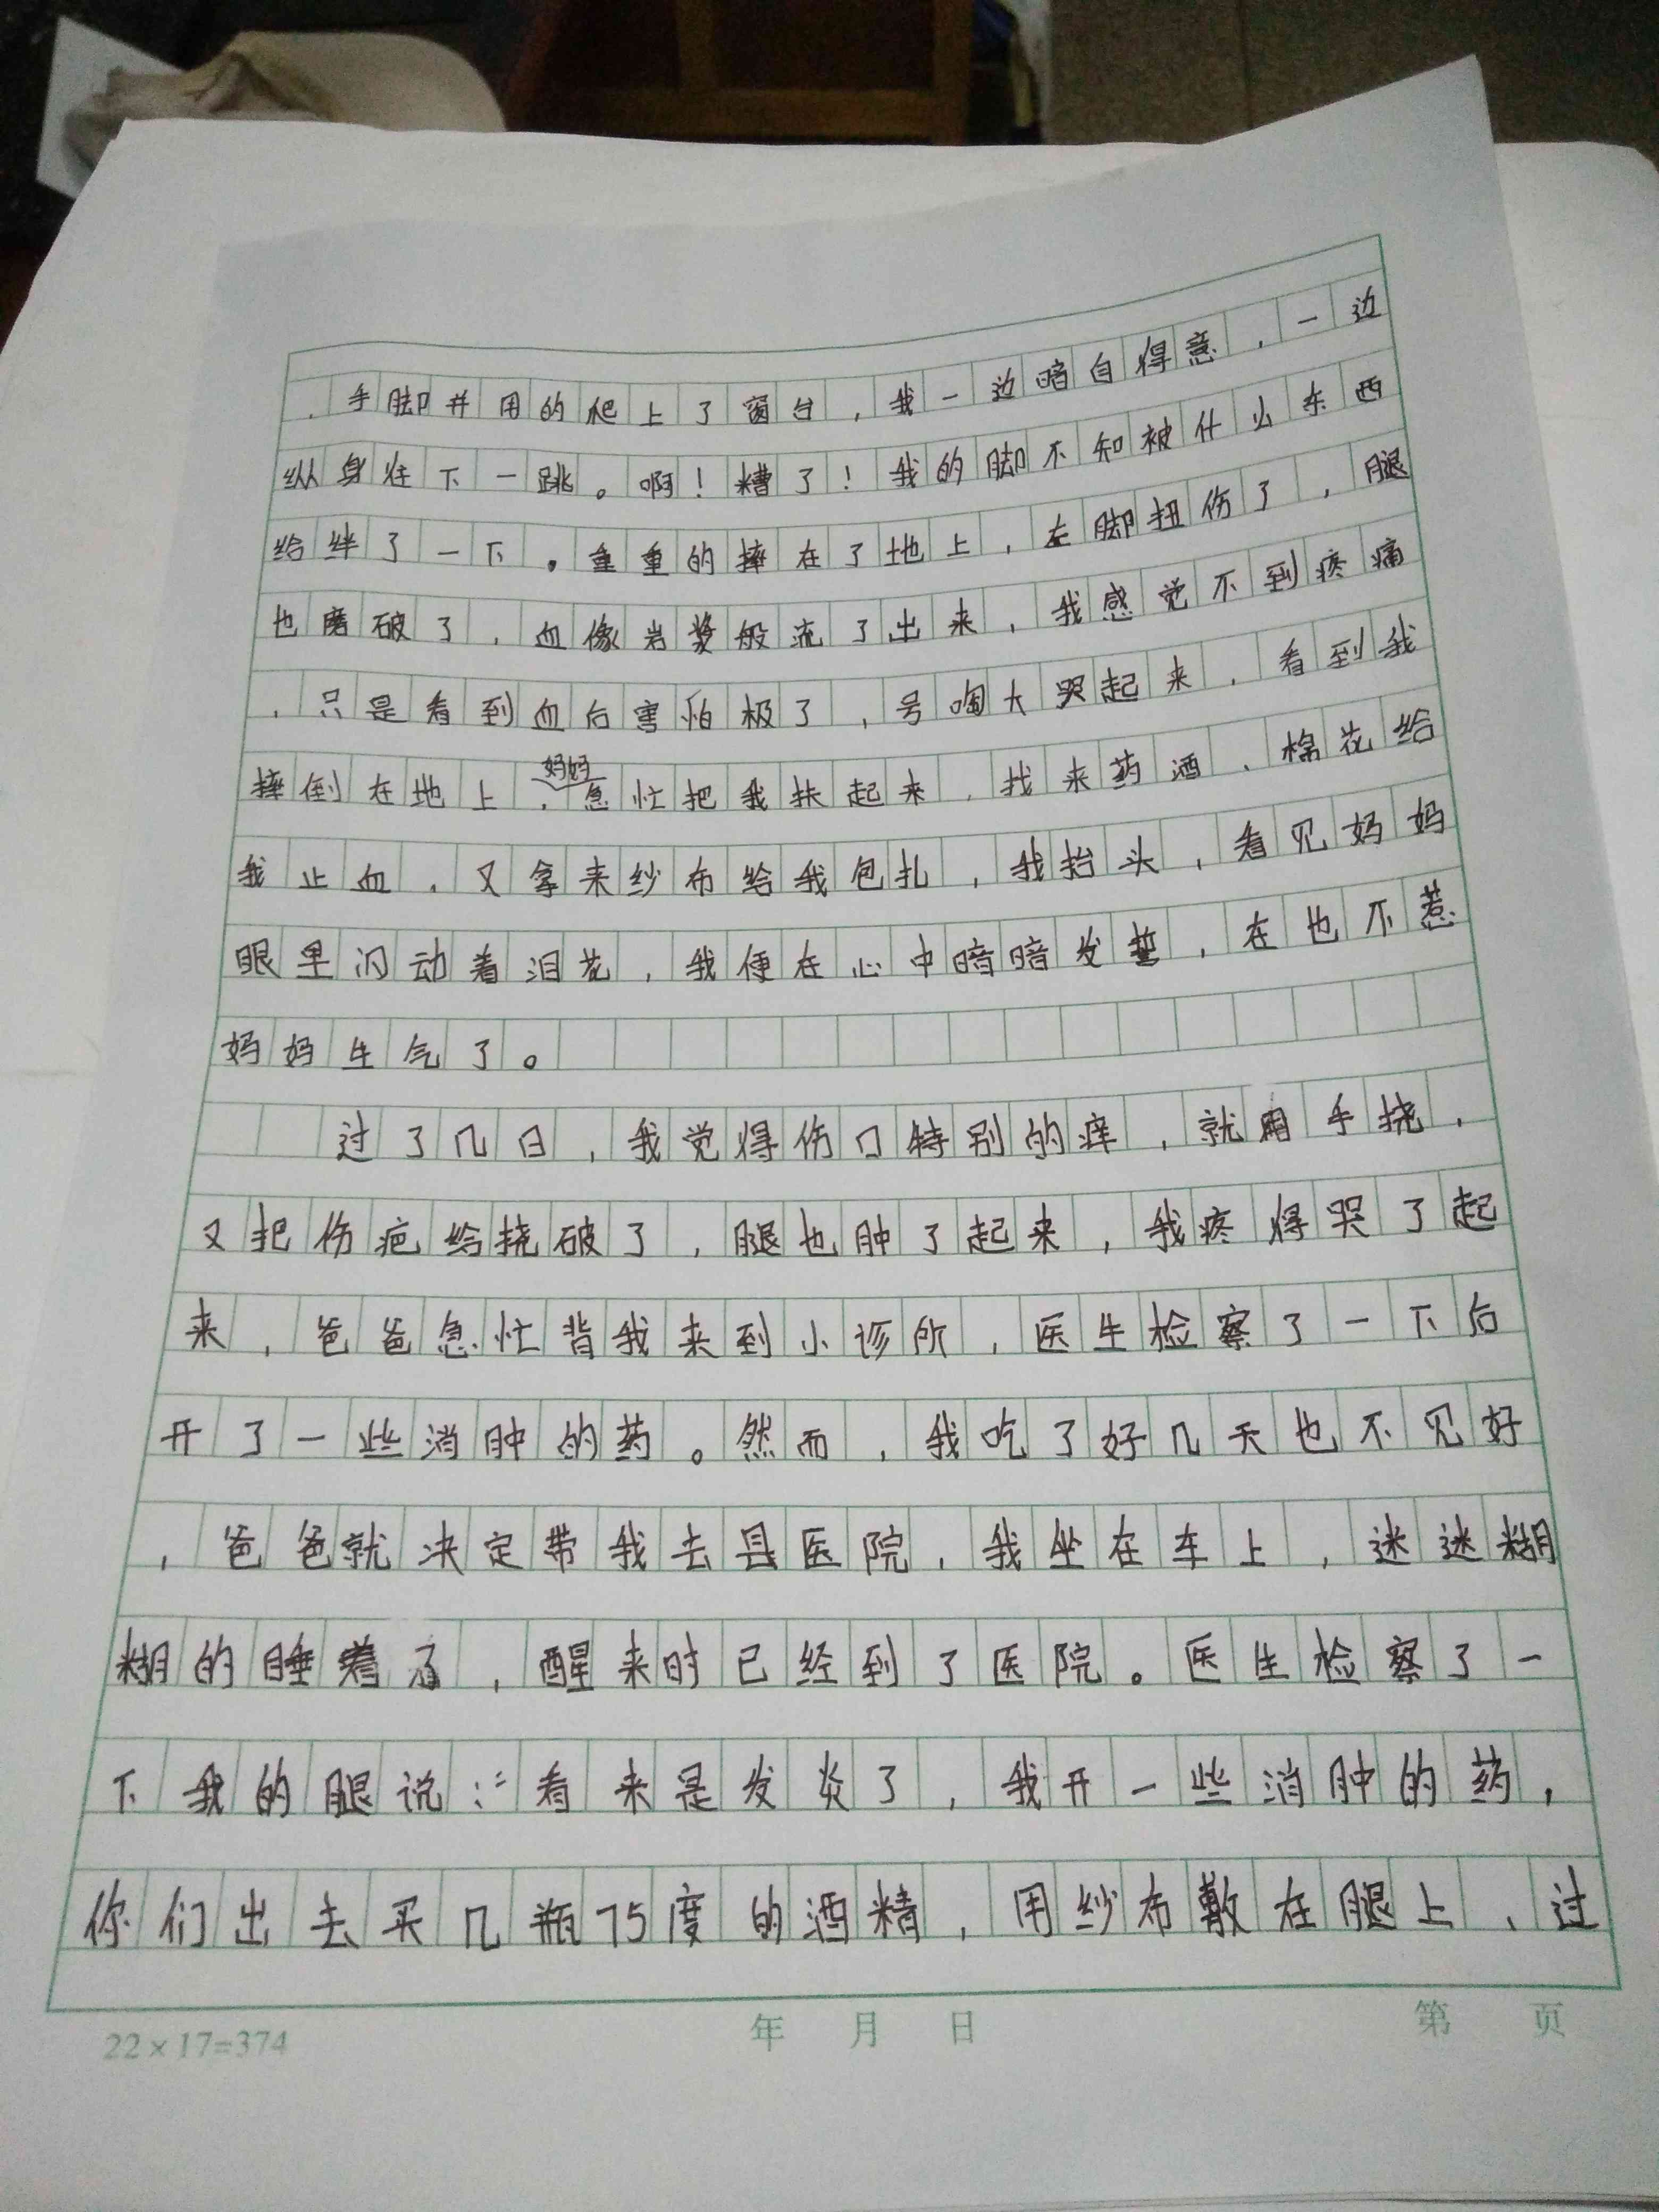 ，手脚并用的爬上了窗台，我一边暗自得意，一边
纵身往下一跳。啊！糟了！我的脚不知被什么东西
给绊了一下。重重的摔在了地上，左脚扭伤了，腿
也磨破了，血像岩浆般流了出来，我感觉不到疼痛
，只是看到血后害怕极了，号啕大哭起来，看到我
摔倒在地上，妈妈急忙把我扶起来，找来药酒、棉花给
我止血，又拿来纱布给我包扎，我抬头，看见妈妈
眼里闪动着泪花，我便在心中暗暗发誓，在也不惹
妈妈生气了。
过了几日，我觉得伤口特别的痒，就用手挠，
又把伤疤给挠破了，腿也肿了起来，我疼得哭了起
来，爸爸急忙背我来到小诊所，医生检察了一下后
开了一些消肿的药。然而，我吃了好几天也不见好
，爸爸就决定带我去县医院，我坐在车上，迷迷糊
糊的睡着了，醒来时已经到了医院。医生检察了一
下我的腿说：“看来是发炎了，我开一些消肿的药，
你们出去买几瓶75度的酒精，用纱布敷在腿上、过
22×17=374 年 月 日 第 页